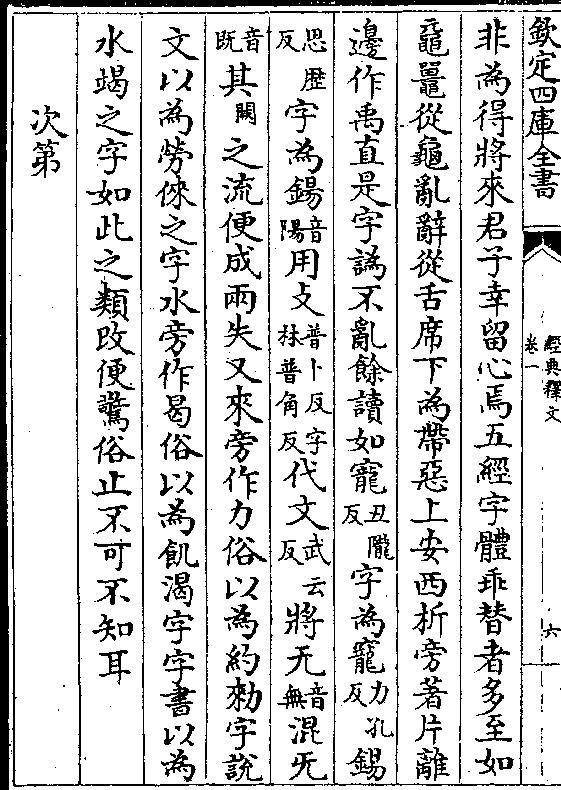 欽定四庫全書
經典釋文
卷一
六
非為得將來君子幸留心焉五經字體乖替者多至如
黿鼉從龜亂辭從舌席下為帶惡上安西析旁著片離
邊作禹直是字譌不亂餘讀如寵丑隴反字為竉力孔反錫
思歷反字為鍚音陽用攴普卜反字林普角反代文武云反將无音無混旡
音既其闕之流便成兩失又來旁作力俗以為約勑字說
文以為勞倈之字水旁作曷俗以為飢渴字字書以為
水竭之字如此之類改便驚俗止不可不知耳
次第